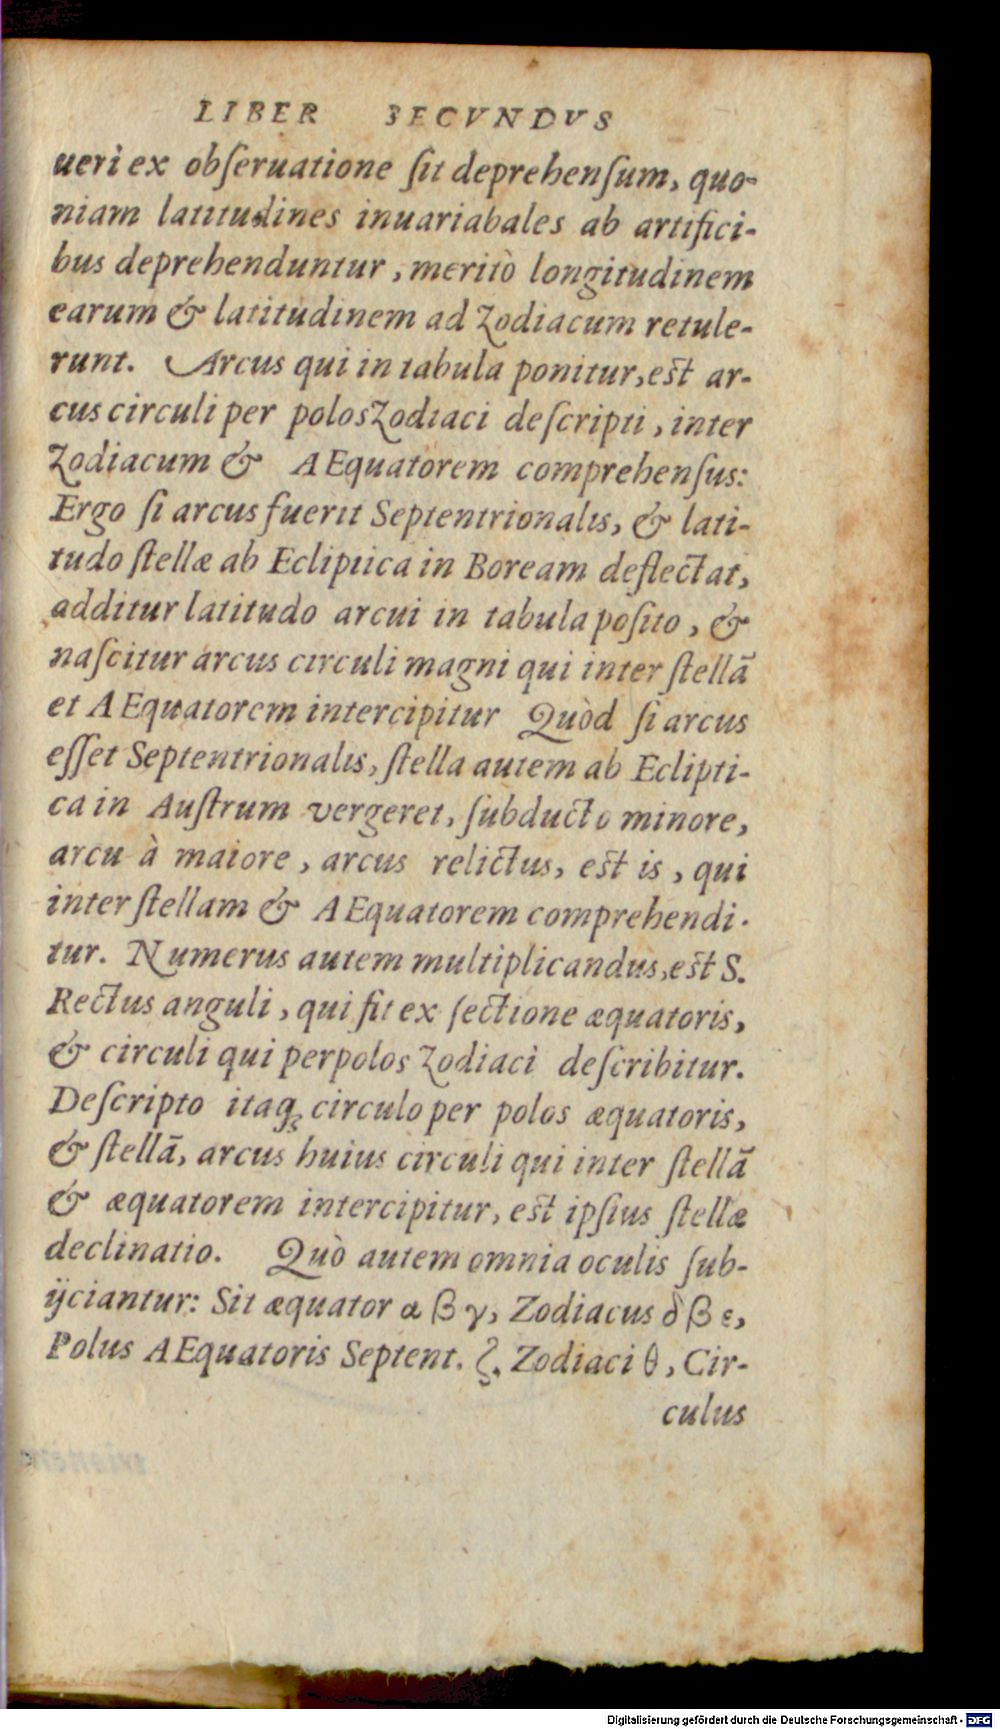 LIBER SECVNDVS
ueri ex obſeruatione ſit deprehenſum, quo-
niam latitudines inuariabales ab artifici-
bus deprehenduntur, meritò longitudinem
earum & latitudinem ad Zodiacum retule-
runt. Arcus qui in tabula ponitur, est ar-
cus circuli per polos Zodiaci deſcripti, inter
Zodiacum & AEquatorem comprehenſus:
Ergo ſi arcus fuerit Septentrionalis, & lati-
tudo ſtellæ ab Ecliptica in Boream deflectat,
additur latitudo arcui in tabula poſito, &
naſcitur arcus circuli magni qui inter ſtellā
et AEquatorem intercipitur Quòd ſi arcus
eſſet Septentrionalis, ſtella autem ab Eclipti-
ca in Auſtrum vergeret, ſubducto minore,
arcu à maiore, arcus relictus, est is, qui
inter ſtellam & AEquatorem comprehendi-
tur. Numerus autem multiplicandus, est S.
Rectus anguli, qui fit ex ſectione æquatoris,
& circuli qui per polos Zodiaci deſcribitur.
Deſcripto itaq; circulo per polos æquatoris,
& ſtellā, arcus huius circuli qui inter ſtellā
& æquatorem intercipitur, est ipſius ſtellæ
declinatio. Quò autem omnia oculis ſub-
ijciantur: Sit æquator α β γ, Zodiacus δ β ε,
Polus AEquatoris Septent. ζ. Zodiaci θ, Cir-
culus
Digitalisierung gefördert durch die Deutsche Forschungsgemeinschaft - DFG